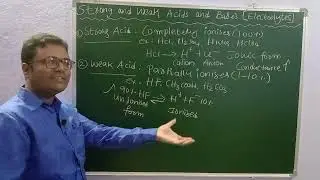 Strong and Weak Acids and Bases (Electrolytes)
① Strong Acid: Completely ionises (100%)
ex. HCl,
HCl → H⁺ + Cl⁻ Ionic form
cation Anion Conductance ↑
② Weak Acid: Partially ionises (1-10%)
ex:- HF, CH₃COOH, H₂CO₃
90% HF ⇌ H⁺ + F⁻ 10%
Unionised ionised
form